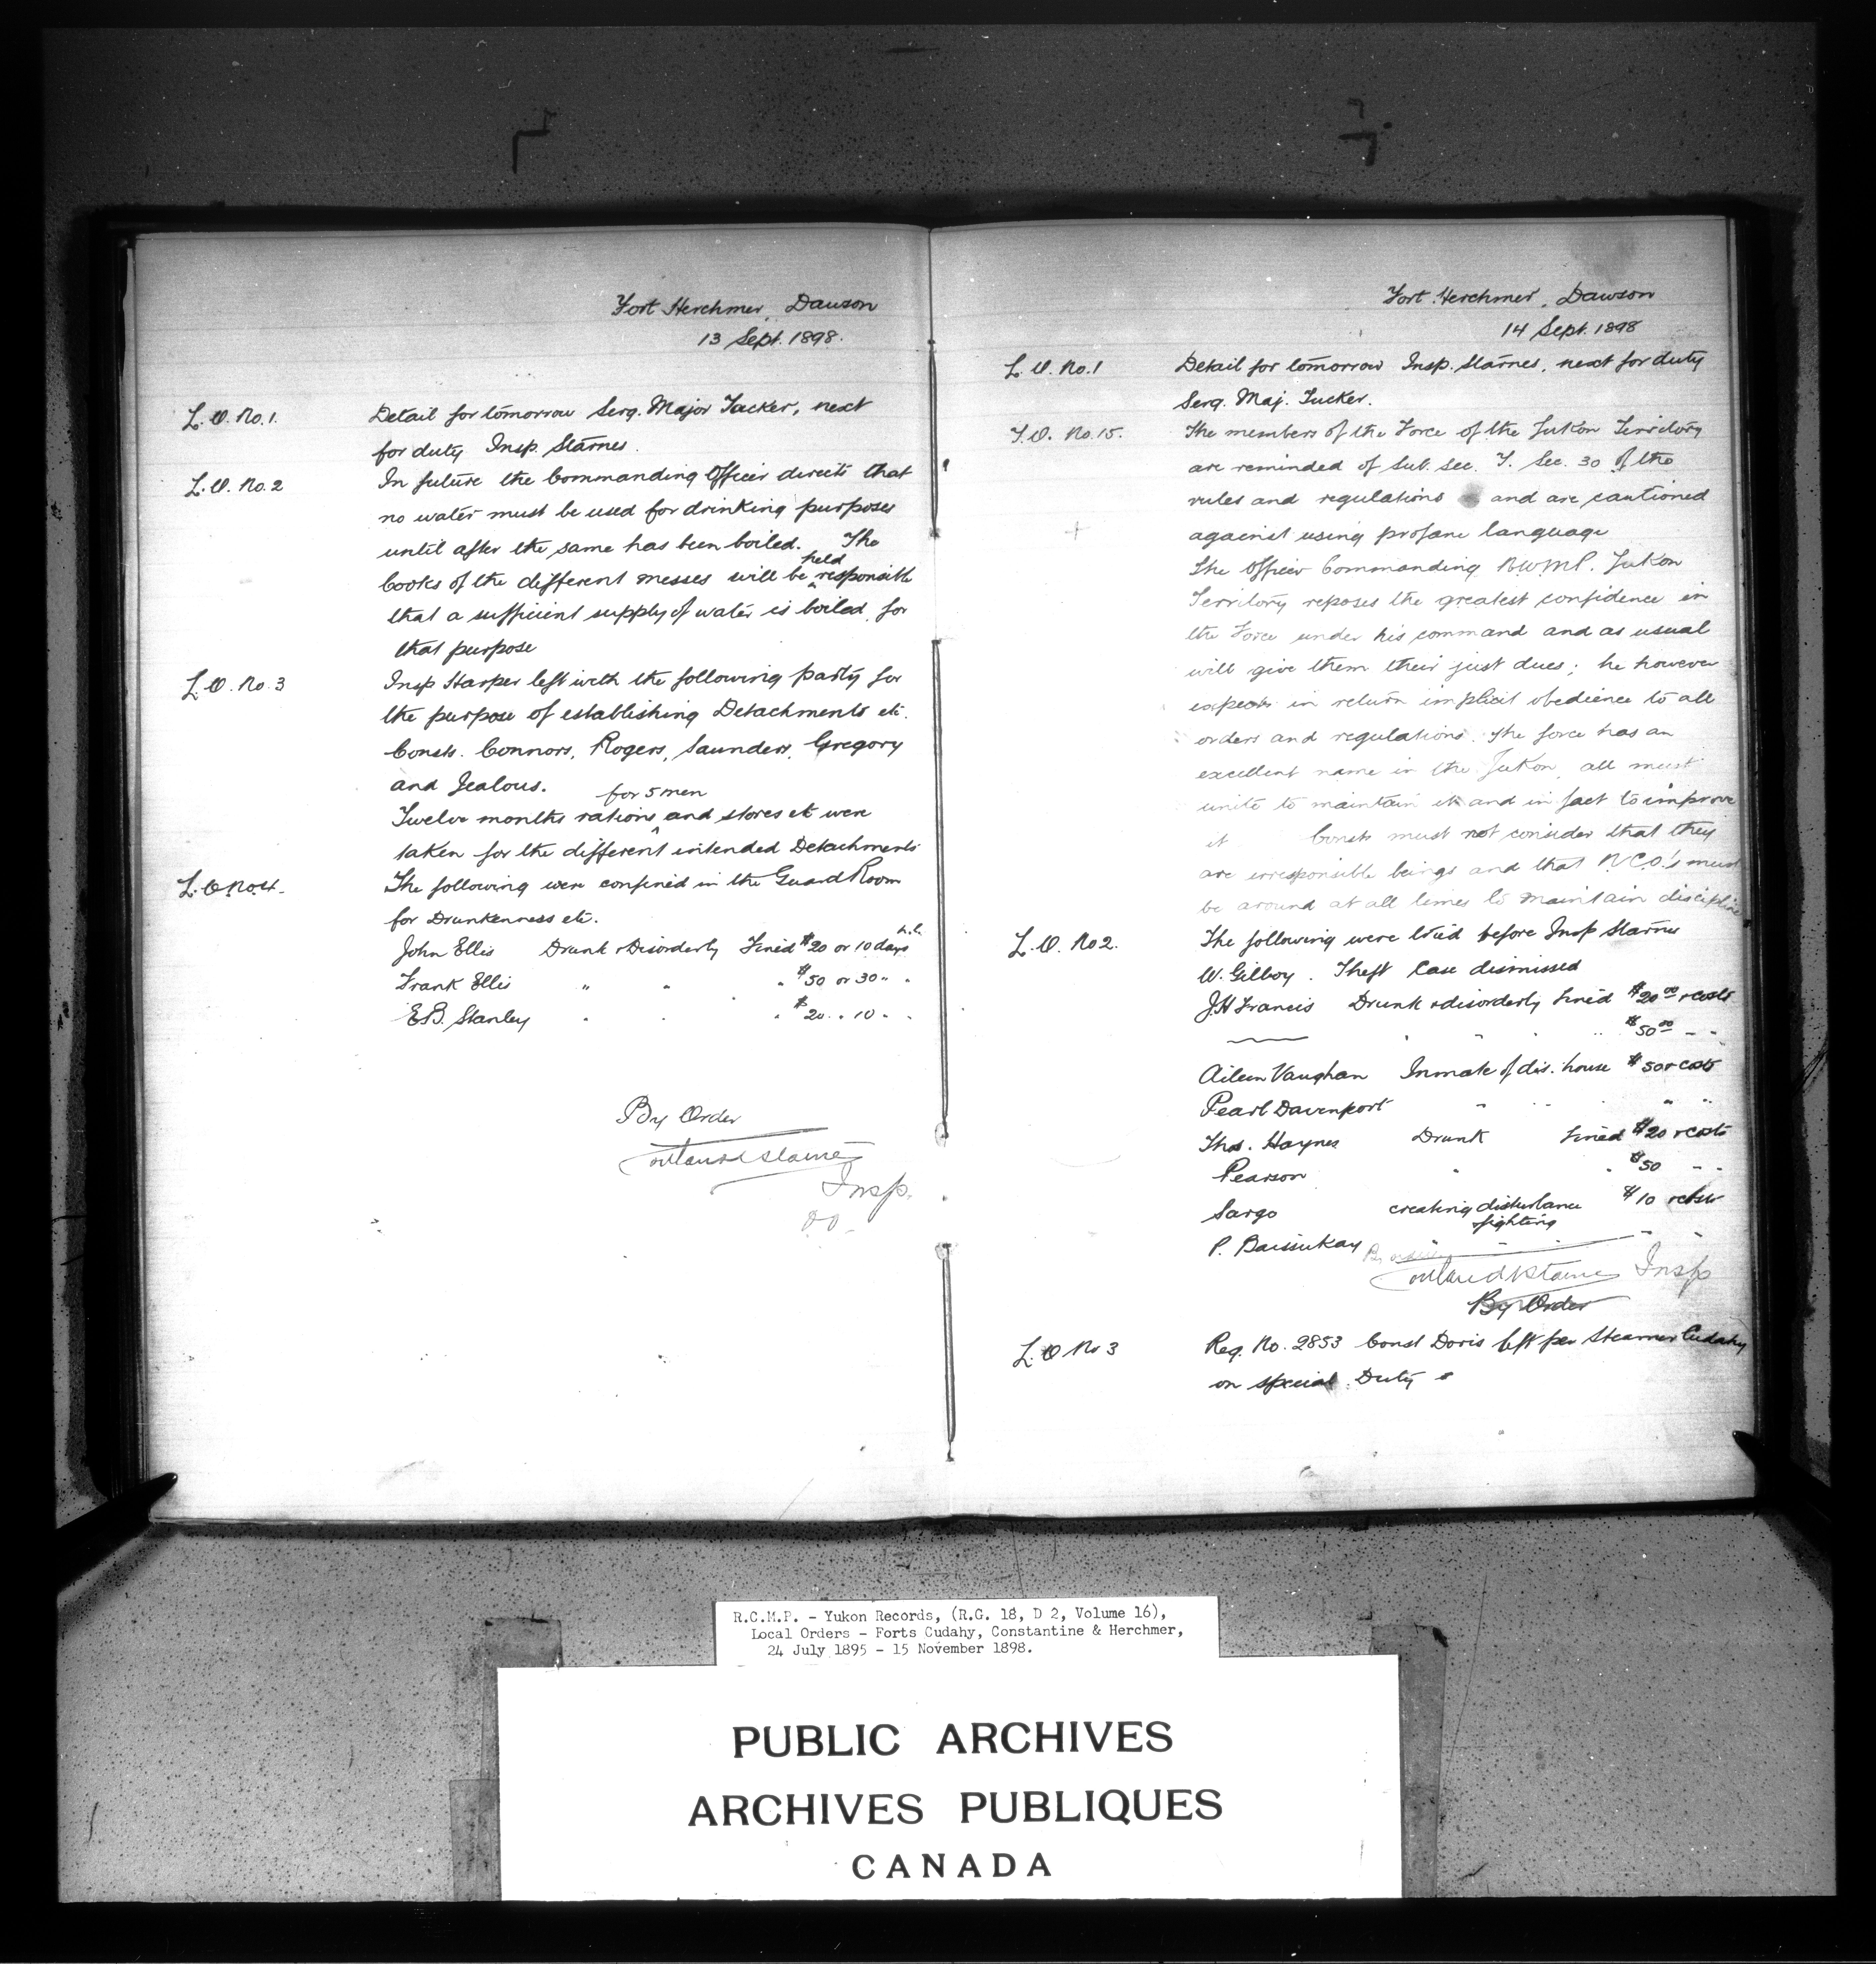 Fort Herchmer, Dawson
13 Sept. 1898.
L.O. No. 1. Detail for tomorrow Serg. Major Tucker, next
for duty Insp. Starnes.
L.O. No. 2 In future the Commanding Officer directs that
no water must be used for drinking purposes
until after the same has been boiled. The
Cooks of the different messes will be held responsible
that a sufficient supply of water is boiled for
that purpose
L.O. No. 3 Insp Harper left with the following party for
the purpose of establishing Detachments etc.
Consts. Connors, Rogers, Saunders, Gregory
and Jealous.
Twelve months rations for 5 men and stores etc were
taken for the different intended Detachments
L.O No 4. The following were confined in the Guard Room
for Drunkenness etc.
John Ellis Drunk & Disorderly Fined $20 or 10 days h.l.
Frank Ellis " " " $50 or 30 " "
E.B. Stanley " " " $20 " 10 " "
By Order
Starnes
Insp.
Fort Herchmer, Dawson
14 Sept. 1898
L.O. No. 1 Detail for tomorrow Insp. Starnes, next for duty
Serg. Maj. Tucker.
Y.O. No. 15. The members of the Force of the Yukon Territory
are reminded of Sub. Sec. Y. Sec. 30 of the
rules and regulations and are cautioned
against using profane language
The Officer Commanding N.W.M.P. Yukon
Territory reposes the greatest confidence in
the Force under his command and as usual
will give them their just dues; he however
expects in return implicit obedience to all
orders and regulations. The force has an
excellent name in the Yukon, all must
unite to maintain it and in fact to improve
it Consts must not consider that they
are irresponsible beings and that N.C.O.'s must
be around at all times to maintain discipline
L.O. No 2. The following were tried before Insp Starnes
W. Gilboy. Theft Case dismissed
J.H Francis Drunk & disorderly fined $20.00 & costs
" " " $50.00 " "
Aileen Vaughan Inmate of dis. house $50 & costs
Pearl Davenport " " " " "
Thos. Haynes Drunk fined $20 & costs
Pearson " " $50 " "
Sargo creating disturbance fighting $10 & costs
P. " " "
By order
Starnes Insp
By Order
L.O No 3 Reg. No. 2853 Const Doris left per Steamer Cudahy
on special Duty
R.C.M.P. - Yukon Records, (R.G. 18, D 2, Volume 16),
Local Orders - Forts Cudahy, Constantine & Herchmer,
24 July 1895 - 15 November 1898.
PUBLIC ARCHIVES
ARCHIVES PUBLIQUES
CANADA